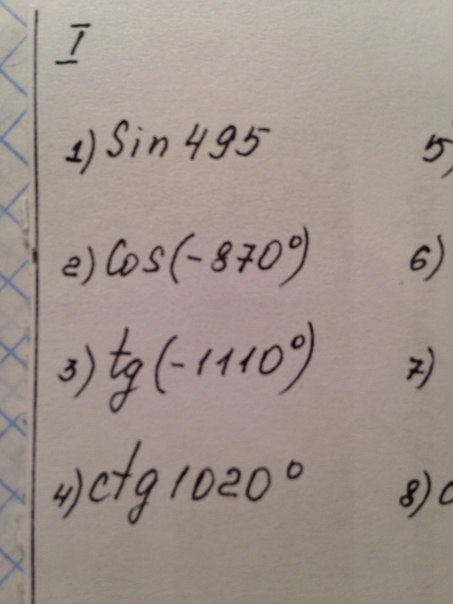 I
1) Sin 495 5)
2) Cos(-870°) 6)
3) tg(-1110°) 7)
4) ctg 1020° 8)